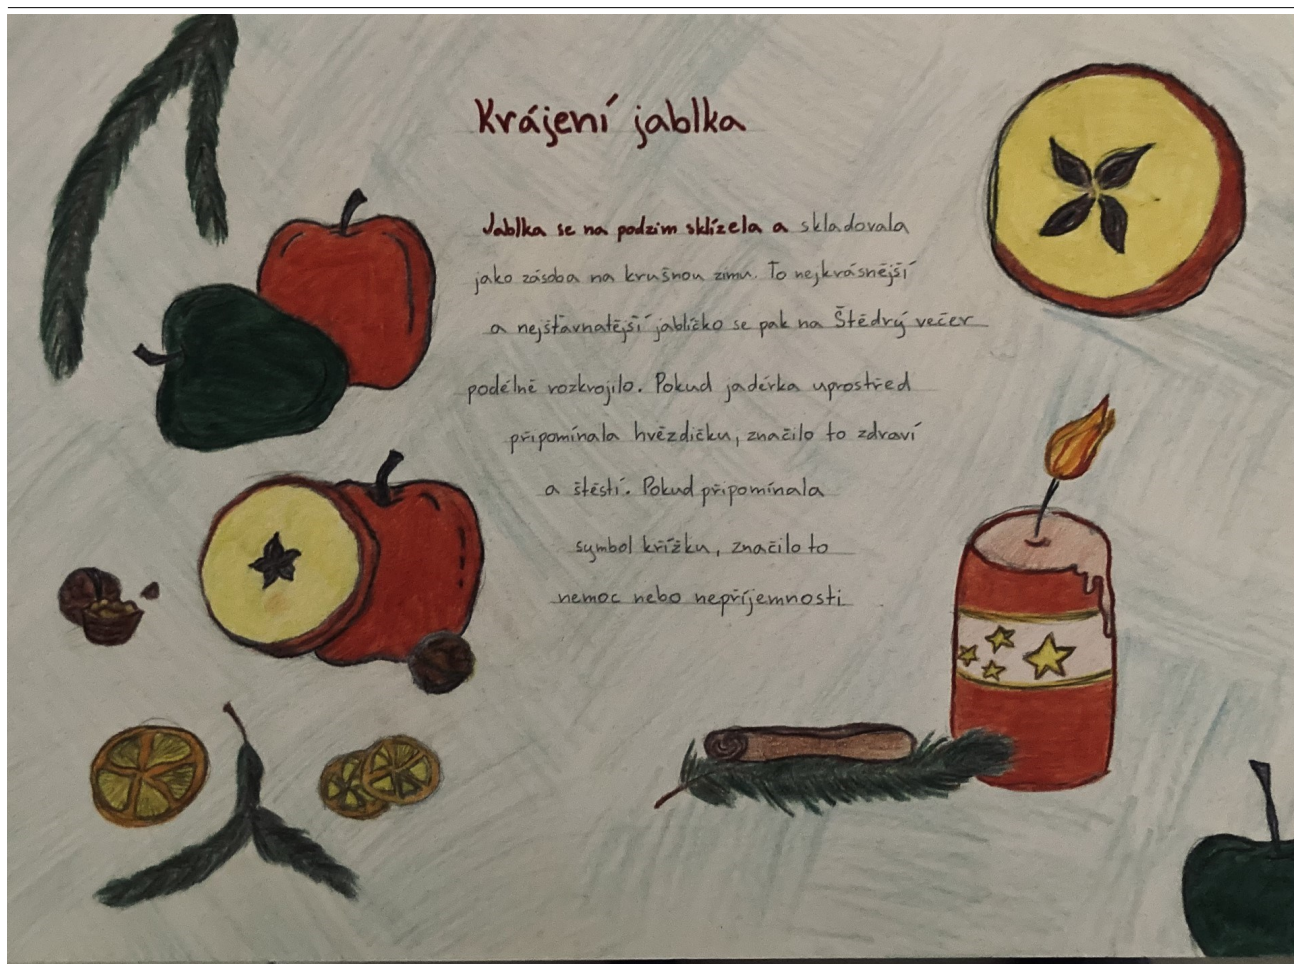 Krájení jablka
Jablka se na podzim sklízela a skladovala
jako zásoba na krušnou zimu. To nejkrásnější
a nejšťavnatější jablíčko se pak na Štědrý večer
podélně rozkrojilo. Pokud jadérka uprostřed
připomínala hvězdičku, značilo to zdraví
a štěstí. Pokud připomínala
symbol křížku, značilo to
nemoc nebo nepříjemnosti